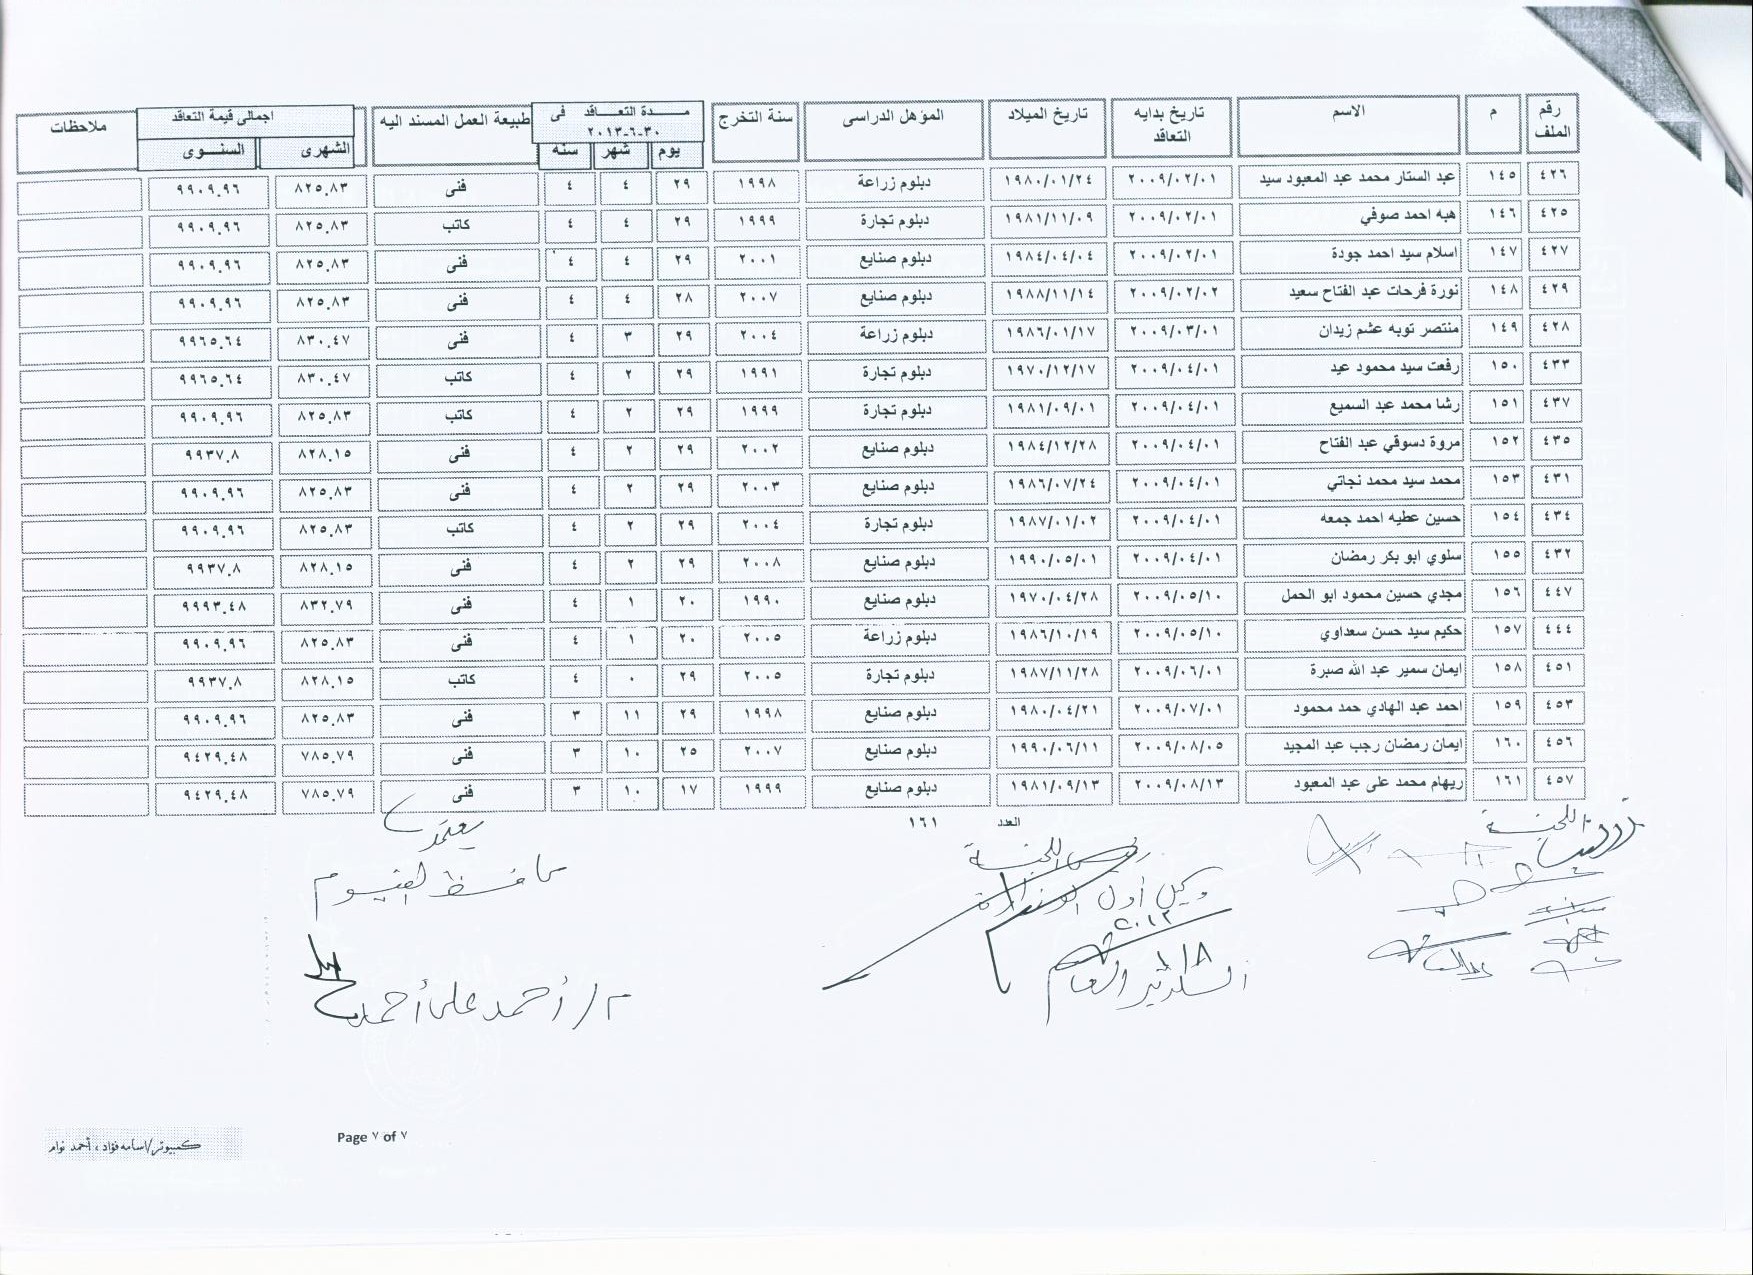 رقم الملف | م | الاسم | تاريخ بدايه التعاقد | تاريخ الميلاد | المؤهل الدراسى | سنة التخرج | مـــدة التعـــاقد فى ٣٠-٦-٢٠١٣ | طبيعة العمل المسند اليه | اجمالى قيمة التعاقد | ملاحظات
يوم | شهر | سنه | الشهرى | السنـــوى
٤٢٦ | ١٤٥ | عبد الستار محمد عبد المعبود سيد | ٢٠٠٩/٠٢/٠١ | ١٩٨٠/٠١/٢٤ | دبلوم زراعة | ١٩٩٨ | ٢٩ | ٤ | ٤ | فنى | ٨٢٥.٨٣ | ٩٩٠٩.٩٦
٤٢٥ | ١٤٦ | هبه احمد صوفي | ٢٠٠٩/٠٢/٠١ | ١٩٨١/١١/٠٩ | دبلوم تجارة | ١٩٩٩ | ٢٩ | ٤ | ٤ | كاتب | ٨٢٥.٨٣ | ٩٩٠٩.٩٦
٤٢٧ | ١٤٧ | اسلام سيد احمد جودة | ٢٠٠٩/٠٢/٠١ | ١٩٨٤/٠٤/٠٤ | دبلوم صنايع | ٢٠٠١ | ٢٩ | ٤ | ٤ | فنى | ٨٢٥.٨٣ | ٩٩٠٩.٩٦
٤٢٩ | ١٤٨ | نورة فرحات عبد الفتاح سعيد | ٢٠٠٩/٠٢/٠٢ | ١٩٨٨/١١/١٤ | دبلوم صنايع | ٢٠٠٧ | ٢٨ | ٤ | ٤ | فنى | ٨٢٥.٨٣ | ٩٩٠٩.٩٦
٤٢٨ | ١٤٩ | منتصر توبه عشم زيدان | ٢٠٠٩/٠٣/٠١ | ١٩٨٦/٠١/١٧ | دبلوم زراعة | ٢٠٠٤ | ٢٩ | ٣ | ٤ | فنى | ٨٣٠.٤٧ | ٩٩٦٥.٦٤
٤٣٣ | ١٥٠ | رفعت سيد محمود عيد | ٢٠٠٩/٠٤/٠١ | ١٩٧٠/١٢/١٧ | دبلوم تجارة | ١٩٩١ | ٢٩ | ٢ | ٤ | كاتب | ٨٣٠.٤٧ | ٩٩٦٥.٦٤
٤٣٧ | ١٥١ | رشا محمد عبد السميع | ٢٠٠٩/٠٤/٠١ | ١٩٨١/٠٩/٠١ | دبلوم تجارة | ١٩٩٩ | ٢٩ | ٢ | ٤ | كاتب | ٨٢٥.٨٣ | ٩٩٠٩.٩٦
٤٣٥ | ١٥٢ | مروة دسوقي عبد الفتاح | ٢٠٠٩/٠٤/٠١ | ١٩٨٤/١٢/٢٨ | دبلوم صنايع | ٢٠٠٢ | ٢٩ | ٢ | ٤ | فنى | ٨٢٨.١٥ | ٩٩٣٧.٨
٤٣١ | ١٥٣ | محمد سيد محمد نجاتي | ٢٠٠٩/٠٤/٠١ | ١٩٨٦/٠٧/٢٤ | دبلوم صنايع | ٢٠٠٣ | ٢٩ | ٢ | ٤ | فنى | ٨٢٥.٨٣ | ٩٩٠٩.٩٦
٤٣٤ | ١٥٤ | حسين عطيه احمد جمعه | ٢٠٠٩/٠٤/٠١ | ١٩٨٧/٠١/٠٢ | دبلوم تجارة | ٢٠٠٤ | ٢٩ | ٢ | ٤ | كاتب | ٨٢٥.٨٣ | ٩٩٠٩.٩٦
٤٣٢ | ١٥٥ | سلوي ابو بكر رمضان | ٢٠٠٩/٠٤/٠١ | ١٩٩٠/٠٥/٠١ | دبلوم صنايع | ٢٠٠٨ | ٢٩ | ٢ | ٤ | فنى | ٨٢٨.١٥ | ٩٩٣٧.٨
٤٤٧ | ١٥٦ | مجدي حسين محمود ابو الحمل | ٢٠٠٩/٠٥/١٠ | ١٩٧٠/٠٤/٢٨ | دبلوم صنايع | ١٩٩٠ | ٢٠ | ١ | ٤ | فنى | ٨٣٢.٧٩ | ٩٩٩٣.٤٨
٤٤٤ | ١٥٧ | حكيم سيد حسن سعداوي | ٢٠٠٩/٠٥/١٠ | ١٩٨٦/١٠/١٩ | دبلوم زراعة | ٢٠٠٥ | ٢٠ | ١ | ٤ | فنى | ٨٢٥.٨٣ | ٩٩٠٩.٩٦
٤٥١ | ١٥٨ | ايمان سمير عبد الله صبرة | ٢٠٠٩/٠٦/٠١ | ١٩٨٧/١١/٢٨ | دبلوم تجارة | ٢٠٠٥ | ٢٩ | ٠ | ٤ | كاتب | ٨٢٨.١٥ | ٩٩٣٧.٨
٤٥٣ | ١٥٩ | احمد عبد الهادي حمد محمود | ٢٠٠٩/٠٧/٠١ | ١٩٨٠/٠٤/٢١ | دبلوم صنايع | ١٩٩٨ | ٢٩ | ١١ | ٣ | فنى | ٨٢٥.٨٣ | ٩٩٠٩.٩٦
٤٥٦ | ١٦٠ | ايمان رمضان رجب عبد المجيد | ٢٠٠٩/٠٨/٠٥ | ١٩٩٠/٠٦/١١ | دبلوم صنايع | ٢٠٠٧ | ٢٥ | ١٠ | ٣ | فنى | ٧٨٥.٧٩ | ٩٤٢٩.٤٨
٤٥٧ | ١٦١ | ريهام محمد على عبد المعبود | ٢٠٠٩/٠٨/١٣ | ١٩٨١/٠٩/١٣ | دبلوم صنايع | ١٩٩٩ | ١٧ | ١٠ | ٣ | فنى | ٧٨٥.٧٩ | ٩٤٢٩.٤٨
العدد ١٦١
اللجنة
رئيس اللجنة
وكيل أول الوزارة
السكرتير العام
يعتمد
محافظ الفيوم
م/ أحمد على أحمد
Page ٧ of ٧
كمبيوتر/اسامه فؤاد ، أحمد نوام